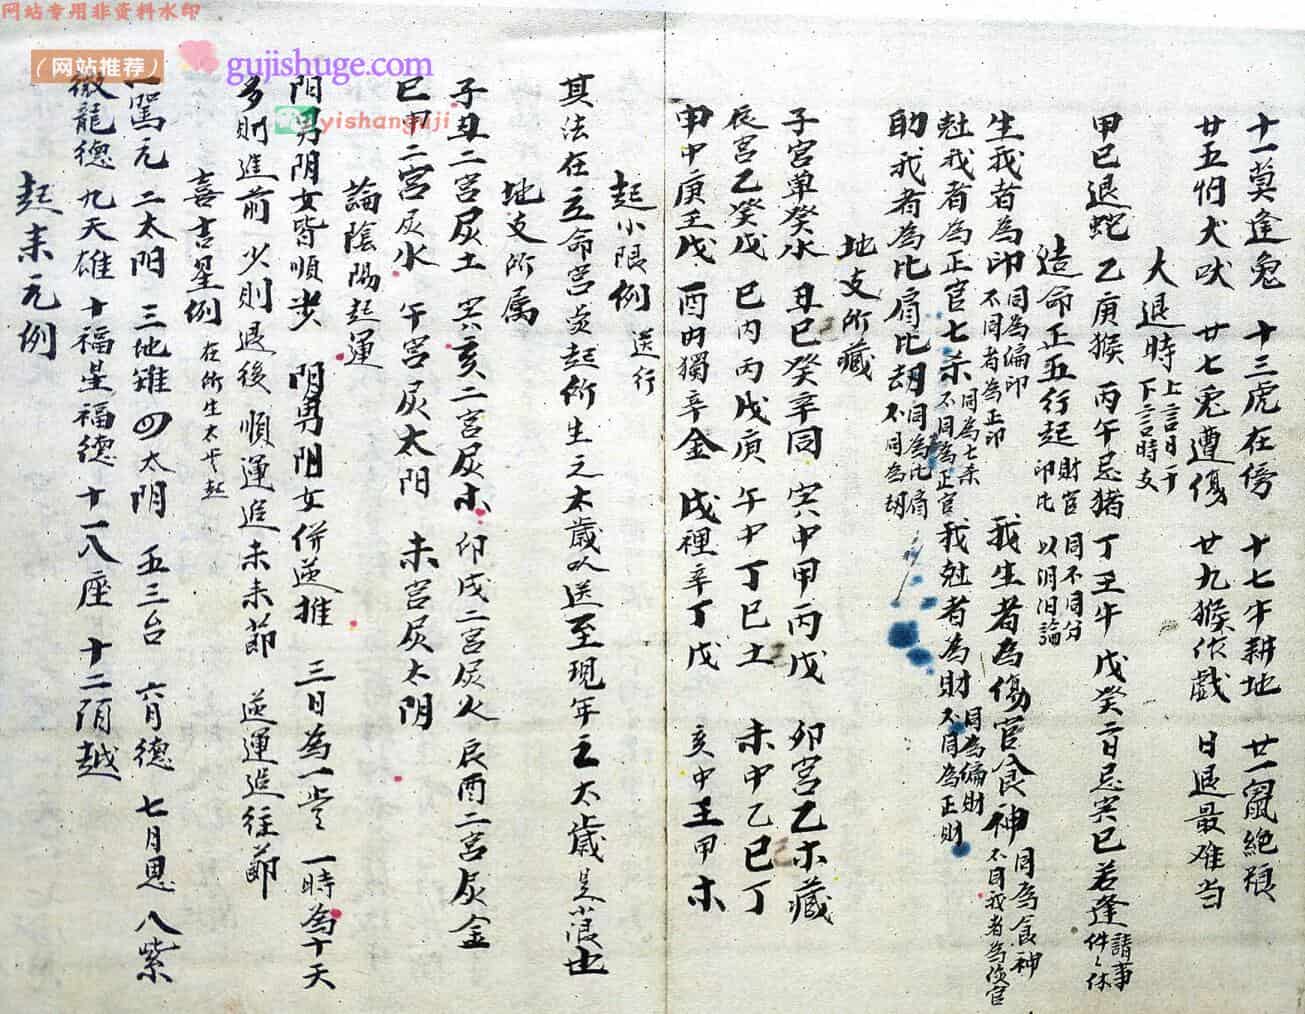 网站专用非资料水印
(网站推荐)
gujishuge.com
yishanguji
十一莫逢兔 十三虎在傍 十七牛耕地 廿一鼠絶頭
廿五怕犬吠 廿七兎遭傷 廿九猴作戲 日退最难当
大退時 上言日干 下言時支
甲巳退蛇 乙庚猴 丙午忌猪 丁壬午 戊癸二日忌寅巳 若逢請事件〻休
造命正五行起 財官印比 同不同分 以
生我者為印 同為偏印 不同者為正印 我生者為傷官食神 同為食神 不同我者為傷官
尅我者為正官七杀 同為七杀 不同為正官 我尅者為財 同為偏財 不同為正財
助我者為比肩比胡 同為比肩 不同為胡
地支所藏
子宮草癸水 丑巳癸辛同 寅中甲丙戊 卯宮乙木藏
辰宮乙癸戊 巳内丙戊庚 午中丁巳土 未中乙巳丁
申中庚壬戊 酉内獨辛金 戌裡辛丁戊 亥中壬甲木
起小限例 送行
其法在立命宮处起所生之太歲以送至現年之太歲是小限也
地支所属
子丑二宮属土 寅亥二宮属木 卯戌二宮属火 辰酉二宮属金
巳申二宮属水 午宮属太阳 未宮属太阴
論陰陽起運
阳男阴女皆順步 阴男阳女併逆推 三日為一歲 一時為十天
多則進前一少則退後 順運進未未節 逆運退往節
喜吉星例 在所生太歲起
一駕元 二太阳 三地雄 四太阴 五三台 六月德 七月恩 八紫
微龍德 九天雄 十福星福德 十一八座 十二
起末元例